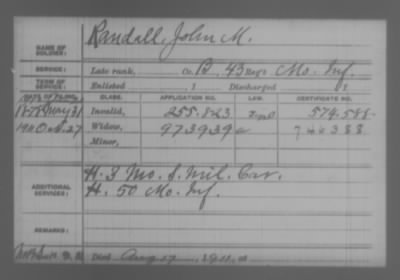 Randall, John M.
NAME OF SOLDIER:
SERVICE: Late rank, Co. B, 43 Reg't Mo. Inf.
TERM OF SERVICE: Enlisted , 1 Discharged , 1
DATE OF FILING. CLASS. APPLICATION NO. LAW. CERTIFICATE NO.
1878 May 31 Invalid, 255.823 579.588.
1911 Oct. 27 Widow, 973939 744388.
Minor,
ADDITIONAL SERVICES: H. 3 Mo. S. Mil. Cav.
H. 50 Mo. Inf.
REMARKS:
Died Aug 17, 1911, at